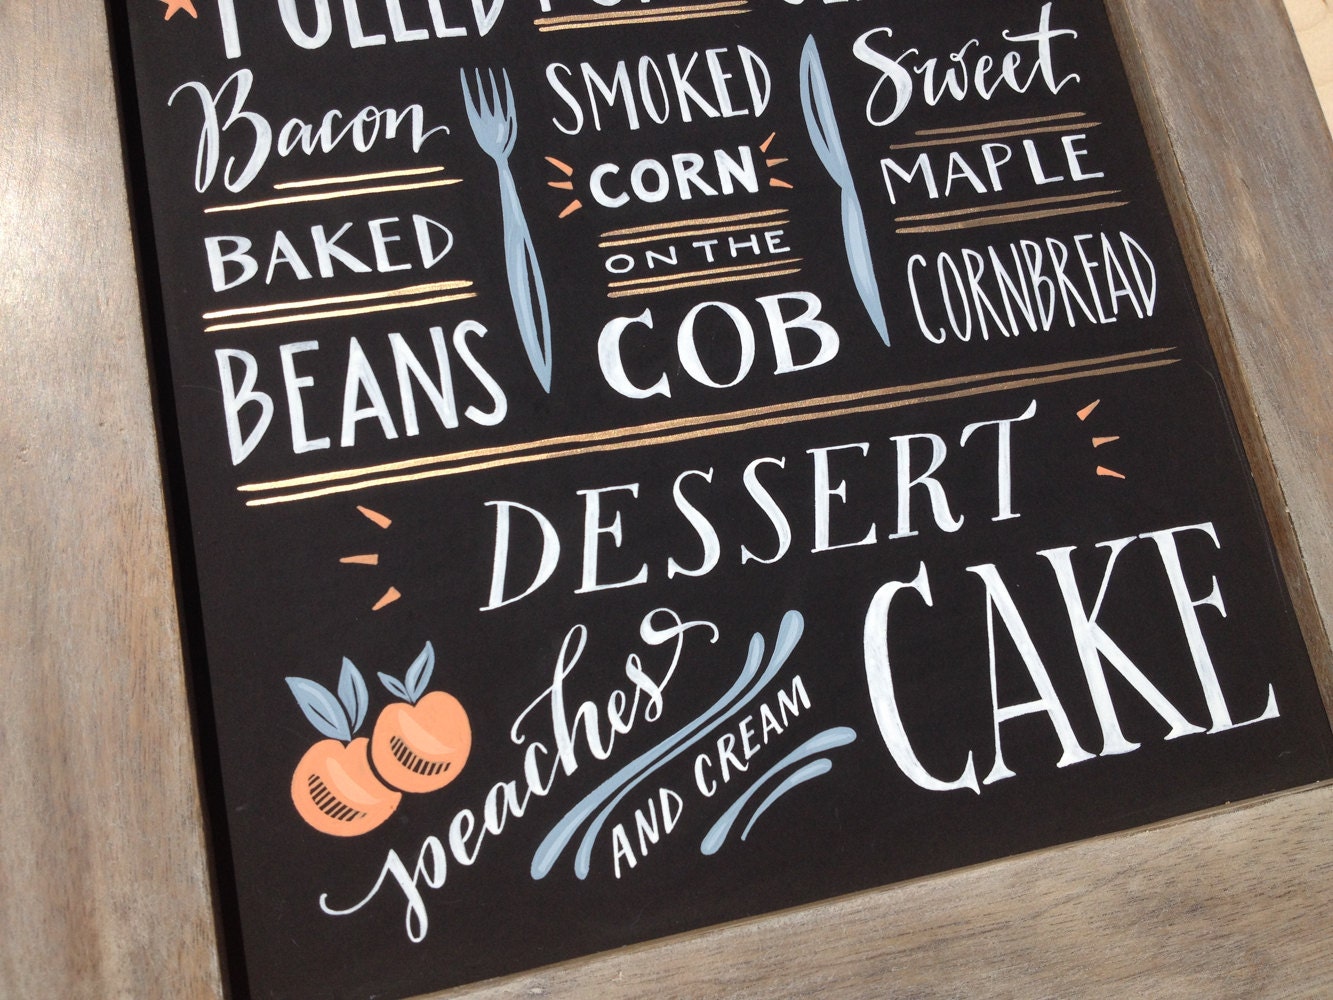 PULLED
Bacon
BAKED
BEANS
SMOKED
CORN
ON THE
COB
Sweet
MAPLE
CORNBREAD
DESSERT
peaches
AND CREAM
CAKE